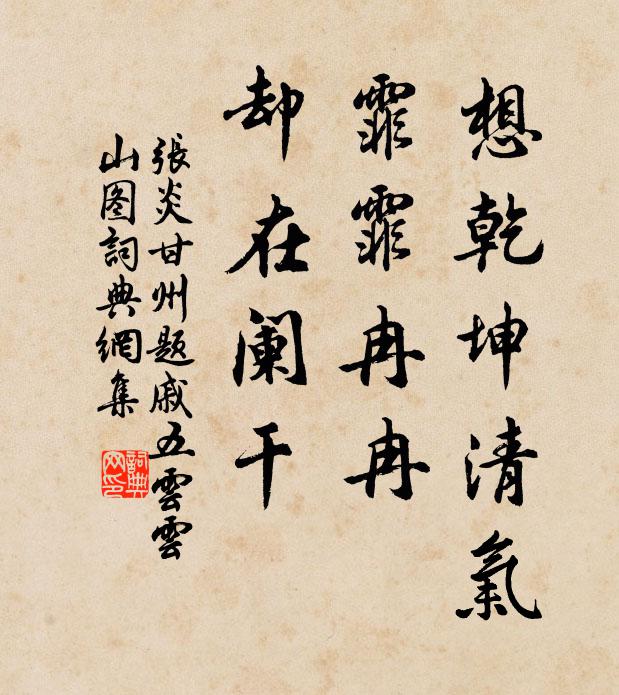 想乾坤清氣
霏霏冉冉
却在阑干
張炎甘州题戚五雲雲
山图詞典網集
詞典網印